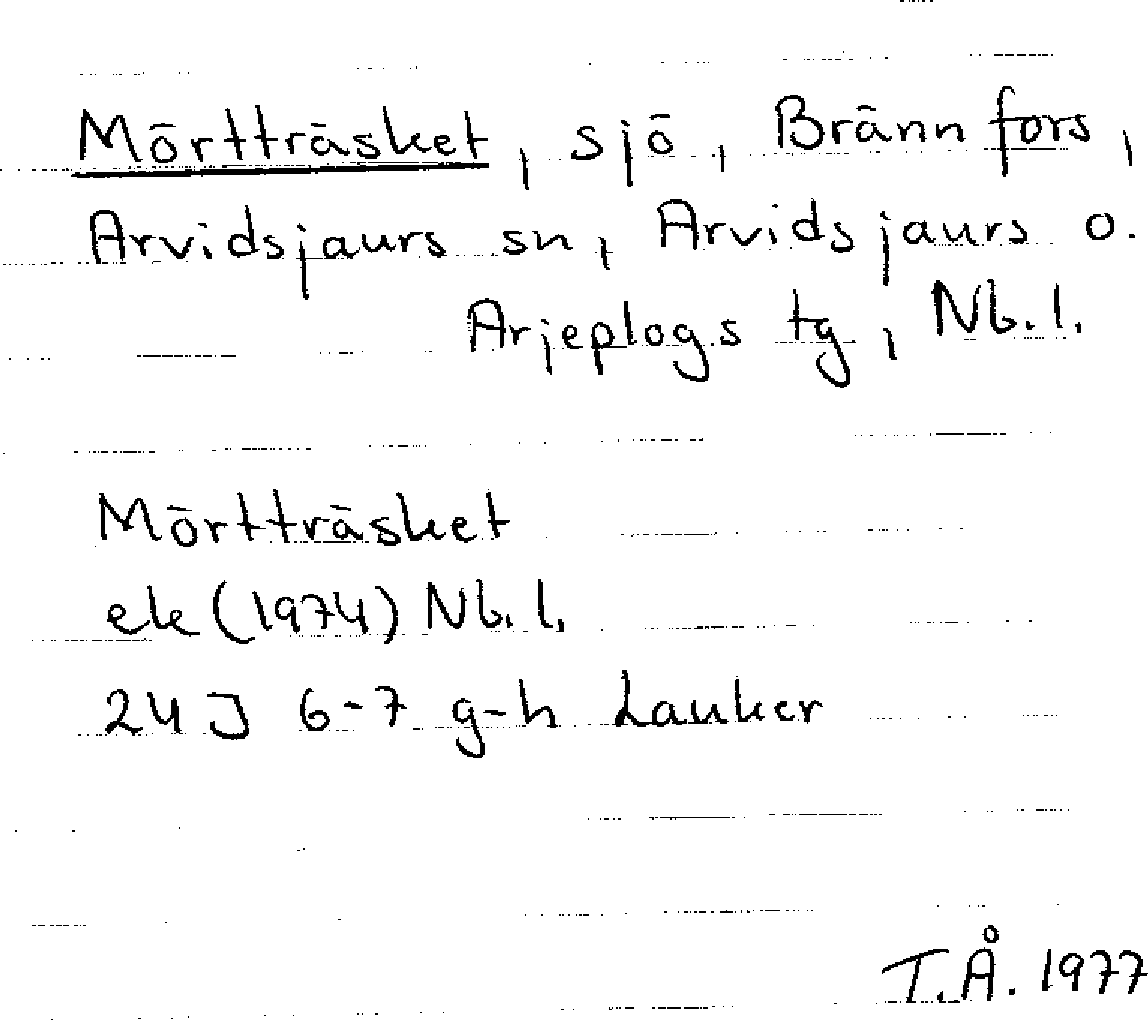 Mörtträsket, sjö, Brännfors,
Arvidsjaurs sn, Arvidsjaurs o.
Arjeplogs tg, Nb.l.
Mörtträsket
ek (1974) Nb.l.
24 J 6-7 g-h Lauker
T.Å. 1977